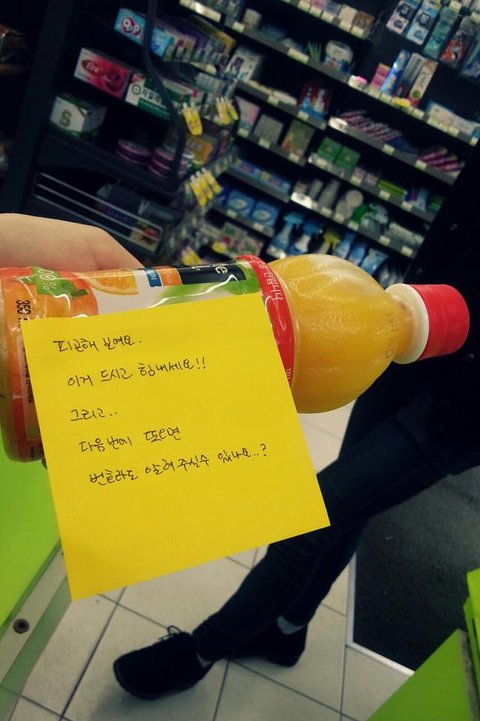 피곤해 보여요.
이거 드시고 힘내세요!!
그리고..
다음번에 또오면
번호라도 알려주실수 있나요..?